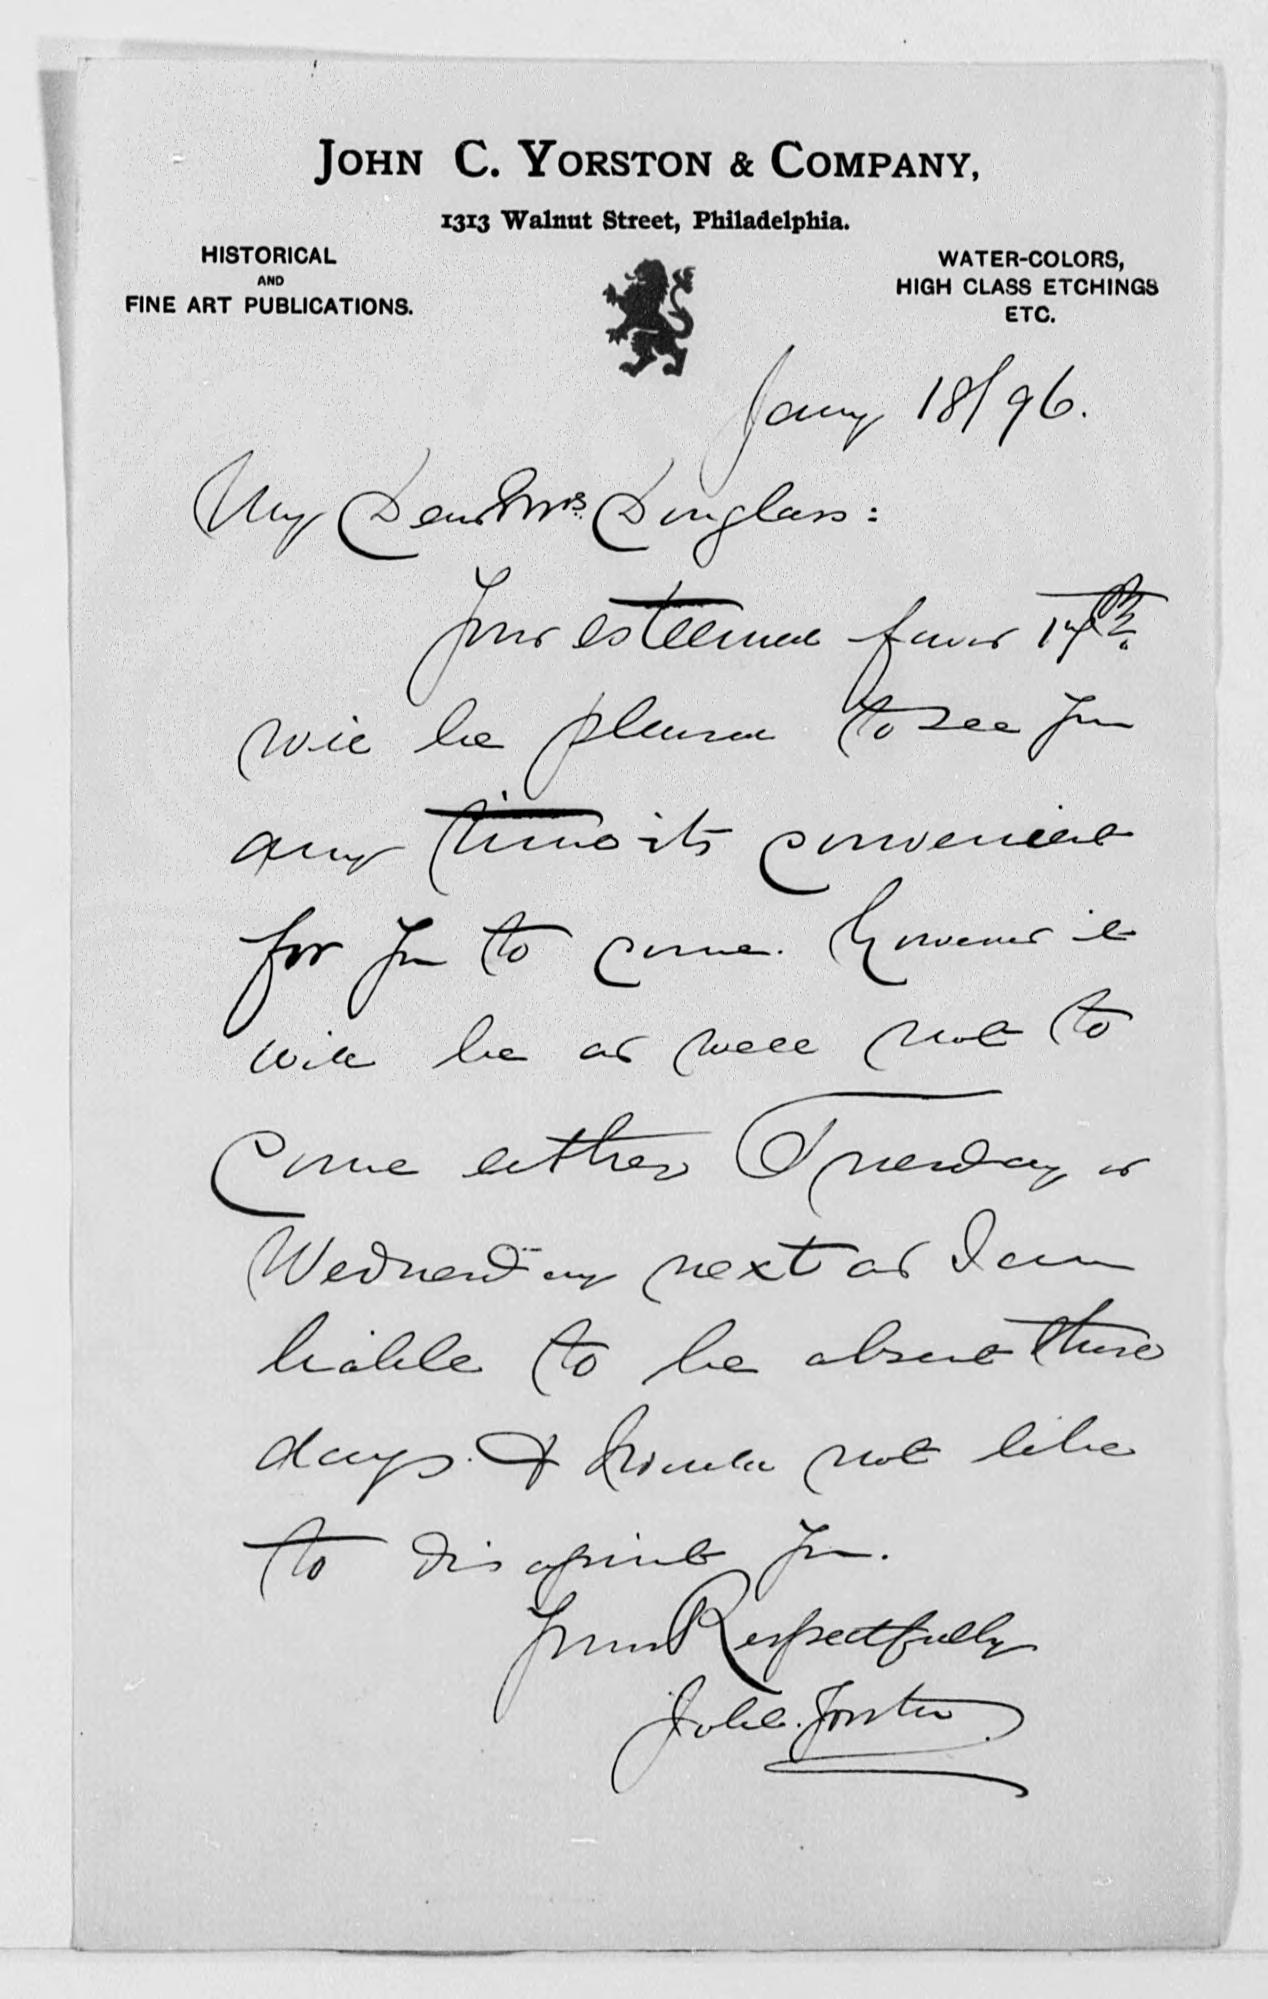 JOHN C. YORSTON & COMPANY,
1313 Walnut Street, Philadelphia.
HISTORICAL
AND
FINE ART PUBLICATIONS.
WATER-COLORS,
HIGH CLASS ETCHINGS
ETC.
Jany 18/96.
My Dear Mrs. Douglass:
Your esteemed favor 17th.
will be pleased to see you
any time its convenient
for you to come. However it
will be as well not to
come either Tuesday or
Wednesday next as I am
liable to be absent those
days. & would not like
to disapoint you.
Yours Respectfully
Jno C. Yorston